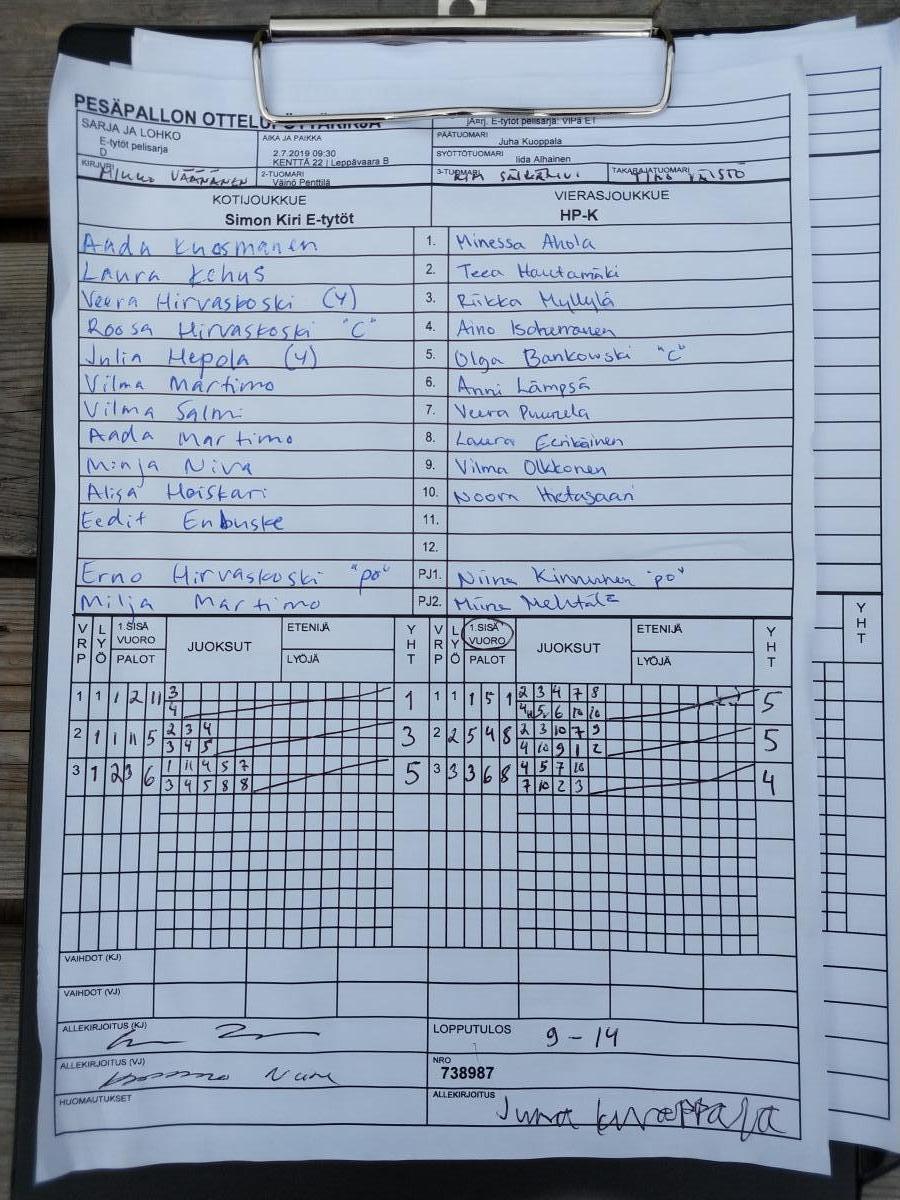 PESÄPALLON OTTELUPÖYTÄKIRJA
SARJA JA LOHKO
E-tytöt pelisarja
D
AIKA JA PAIKKA
2.7.2019 09:30
KENTTÄ 22 | Leppävaara B
jÄ=rj. E-tytöt pelisarja: ViPa ET
PÄÄTUOMARI
Juha Kuoppala
SYÖTTÖTUOMARI
Iida Alhainen
KIRJURI
MIKKO VÄÄNÄNEN
2-TUOMARI
Väinö Penttilä
3-TUOMARI
TAKARAJATUOMARI
KOTIJOUKKUE
Simon Kiri E-tytöt
VIERASJOUKKUE
HP-K
Aada Kuosmanen 1. Minessa Ahola
Laura Kehus 2. Teea Hautamäki
Veera Hirvaskoski (Y) 3. Riikka Myllylä
Roosa Hirvaskoski "C" 4. Aino Isoherranen
Julia Hepola (Y) 5. Olga Bankowski "C"
Vilma Martimo 6. Anni Lämpsä
Vilma Salmi 7. Veera Puurula
Aada Martimo 8. Laura Eerikäinen
Minja Niva 9. Vilma Olkkonen
Alisa Hoiskari 10. Noora Hietasaari
Eedit Enbuske 11.
12.
Erno Hirvaskoski "po" PJ1. Niina Kinnunen "po"
Milja Martimo PJ2. Miina
VRP LYÖ 1.SISÄ VUORO PALOT JUOKSUT ETENIJÄ LYÖJÄ YHT VRP LYÖ 1.SISÄ VUORO PALOT JUOKSUT ETENIJÄ LYÖJÄ YHT
1 1 1 2 11 3 1 1 1 1 5 1 2 3 4 7 8 5
4 4 5 6 10 10
2 1 1 11 5 2 3 4 3 2 2 5 4 8 2 3 10 7 9 5
3 4 5 4 10 9 1 2
3 1 2 3 6 1 11 4 5 7 5 3 3 3 6 8 4 5 7 10 4
3 4 5 8 8 7 10 2 3
VAIHDOT (KJ)
VAIHDOT (VJ)
ALLEKIRJOITUS (KJ)
LOPPUTULOS
9 - 14
ALLEKIRJOITUS (VJ)
NRO
738987
HUOMAUTUKSET
ALLEKIRJOITUS
Juha Kuoppala
YHT